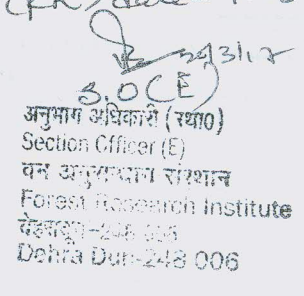 S.O(E)
अनुभाग अधिकारी (स्था0)
Section Officer (E)
वन अनुसन्धान संस्थान
Forest Research Institute
देहरादून-248 006
Dehra Dun-248 006